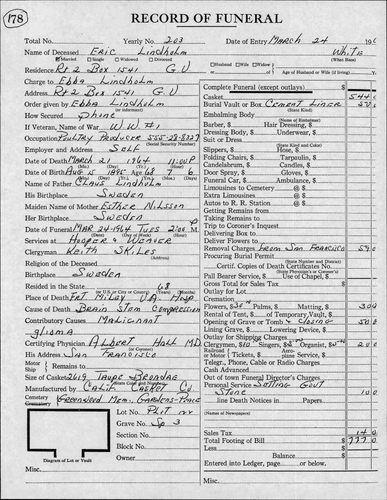 178
RECORD OF FUNERAL
Total No. Yearly No. 203 Date of Entry March 24 19
Name of Deceased Eric Lindholm White
Married Single Widowed Divorced (What Race)
Residence Rt 2 Box 1541 G V
Husband Wife Widow
or of Age of Husband or Wife (if living) Y.
Charge to Ebba Lindholm
Address Rt 2 Box 1541 G V
Order given by Ebba Lindholm
(or informant)
How Secured Phone
If Veteran, Name of War W.W. #1
Occupation Poultry Producer 555-28-8327
(Social Security Number)
Employer and Address Self
Date of Death March 21 1964 11:00 P
Date of Birth Aug 15 1895 Age 68 7 6
Name of Father Claus Lindholm
His Birthplace Sweden
Maiden Name of Mother Esther Nilsson
Her Birthplace Sweden
Date of Funeral Mar 24-1964 Tues 2:00 P M
Services at Hooper & Weaver
Clergyman Keith Skiles
(Address) (Religion)
Birthplace Sweden
Resided in the State 68
(or U.S., or City or County) (Years) (Months)
Place of Death Ft Miley V.A. Hosp.
Cause of Death Brain Stem Compression
Contributory Causes Malignant
glioma
Certifying Physician Albert Hall MD
(or Coroner)
His Address San Francisco
Motor
Ship Remains to
Size of Casket 2619 Taupe Brondag
(State Color and Number)
Manufactured by Calif Casket Co
Cemetery
Crematory Greenwood Mem. Gardens-Place
Lot No. Plit
Grave No. Sp 3
Section No.
Block No.
Owner
Diagram of Lot or Vault
Misc.
Complete Funeral (except outlays) $
Casket
Burial Vault or Box Cement Liner
(State Kind)
Embalming Body
(Name of Embalmer)
Burber, $ Hair Dressing, $
Dressing Body, $ Underwear, $
Suit or Dress
(State Kind and Color)
Slippers, $ Hose, $
Folding Chairs, $ Tarpaulin, $
Candelabrum, $ Candles, $
Door Spray, $ Gloves, $
Funeral Car, $ Ambulance, $
Limousines to Cemetery @ $
Extra Limousines @ $
Autos to R. R. Station @ $
Getting Remains from
Taking Remains to
Trip to Coroner's Request
Delivering Box to
Deliver Flowers to
Removal Charges from San Francisco
Procuring Burial Permit
(State Number and District)
Certif. Copies of Death Certificates No.
(State Persons or Companies)
Pall Bearer Service, $ Use of Chapel, $
Gross Total for Sales Tax $
Outlay for Lot
Cremation
Flowers, $ Palms, $ Matting, $
Rental of Tent, $ of Temporary Vault, $
Opening of Grave or Tomb & Closing
Lining Grave, $ Lowering Device, $
Outlay for Shipping Charges
Clergyman, $ Singers, $ Organist, $
Railroad or Motor Tickets, $ Aeroplane Service, $
Telegr., Phone, Cable or Radio Charges
Cash Advanced
Out of town Funeral Director's Charges
Personal Service Setting Govt
Stone
line Death Notices in Papers
(Names of Newspapers)
Sales Tax
Total Footing of Bill $
Less
Balance $
Entered into Ledger, page or below.
Misc.